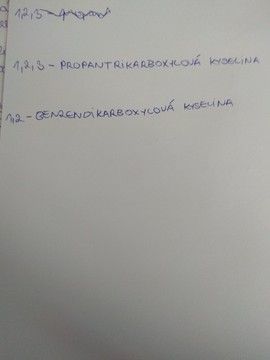 1,2,3 - PROPANTRIKARBOXYLOVÁ KYSELINA
1,2 - BENZENDIKARBOXYLOVÁ KYSELINA